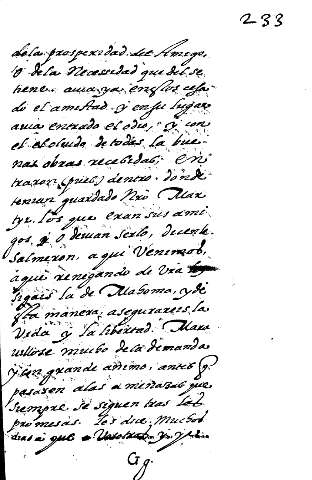 233
de la prosperidad del Amigo,
o de la Necessidad que del se
tiene. auia ya en ellos cesa
do el amistad. y en su lugar
auia entrado el odio, y con
el el oluido de todas la bue
nas obras recebidas; En
traron (pues) dentro, donde
tenian guardado Nro Mar
tyr. los que eran sus ami
gos, o deuian serlo, decenle
Salmeron, aqui Venimos,
a que renegando de Vra
sigais la de Mahoma, y de
esta manera, asegurareis la
Vida y la libertad. Mara
uillose mucho de la demanda
y con grande animo, antes q
pasaron a las amenazas que
siempre se siguen tras las
promesas. les dice. Muchos
dias a que
Gg.